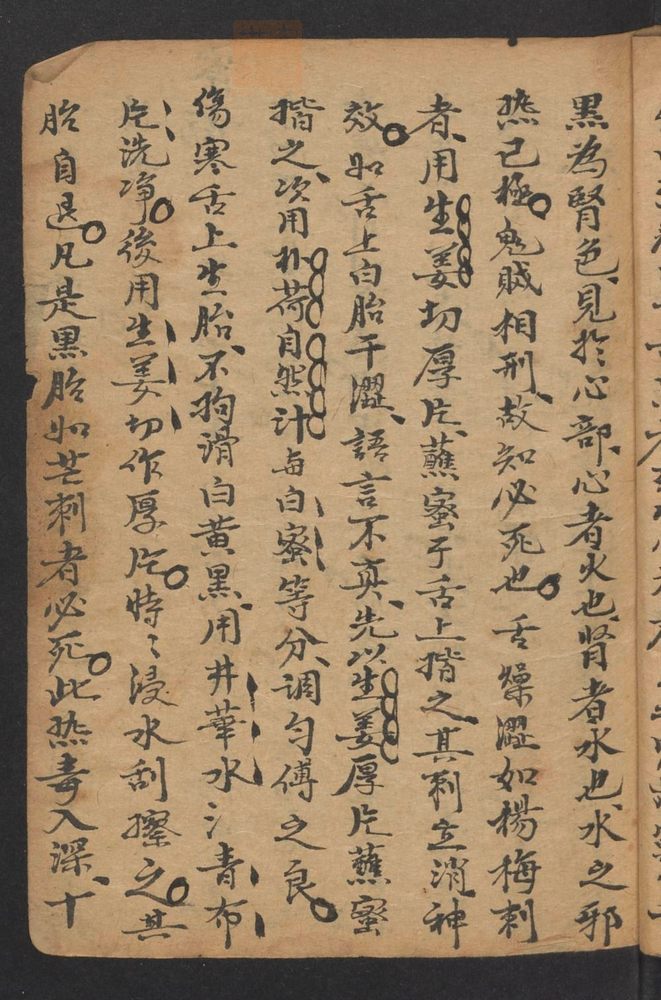 黑為腎色、見於心部、心者火也、腎者水也、水之邪
热已極。鬼賊相刑、故知必死也。舌燥澀如楊梅刺
者、用生姜切厚片、蘸蜜于舌上揩之、其刺立消神
效。如舌上白胎干澀、語言不真、先以生姜厚片蘸蜜
揩之、次用朴荷自然汁每白蜜等分、調勻傅之良。
傷寒舌上生胎、不拘滑白黃黑、用井華水氵青布
片洗净。後用生姜切作厚片。時〻浸水刮擦之。其
胎自退。凡是黑胎如芒刺者必死。此热毒入深、十